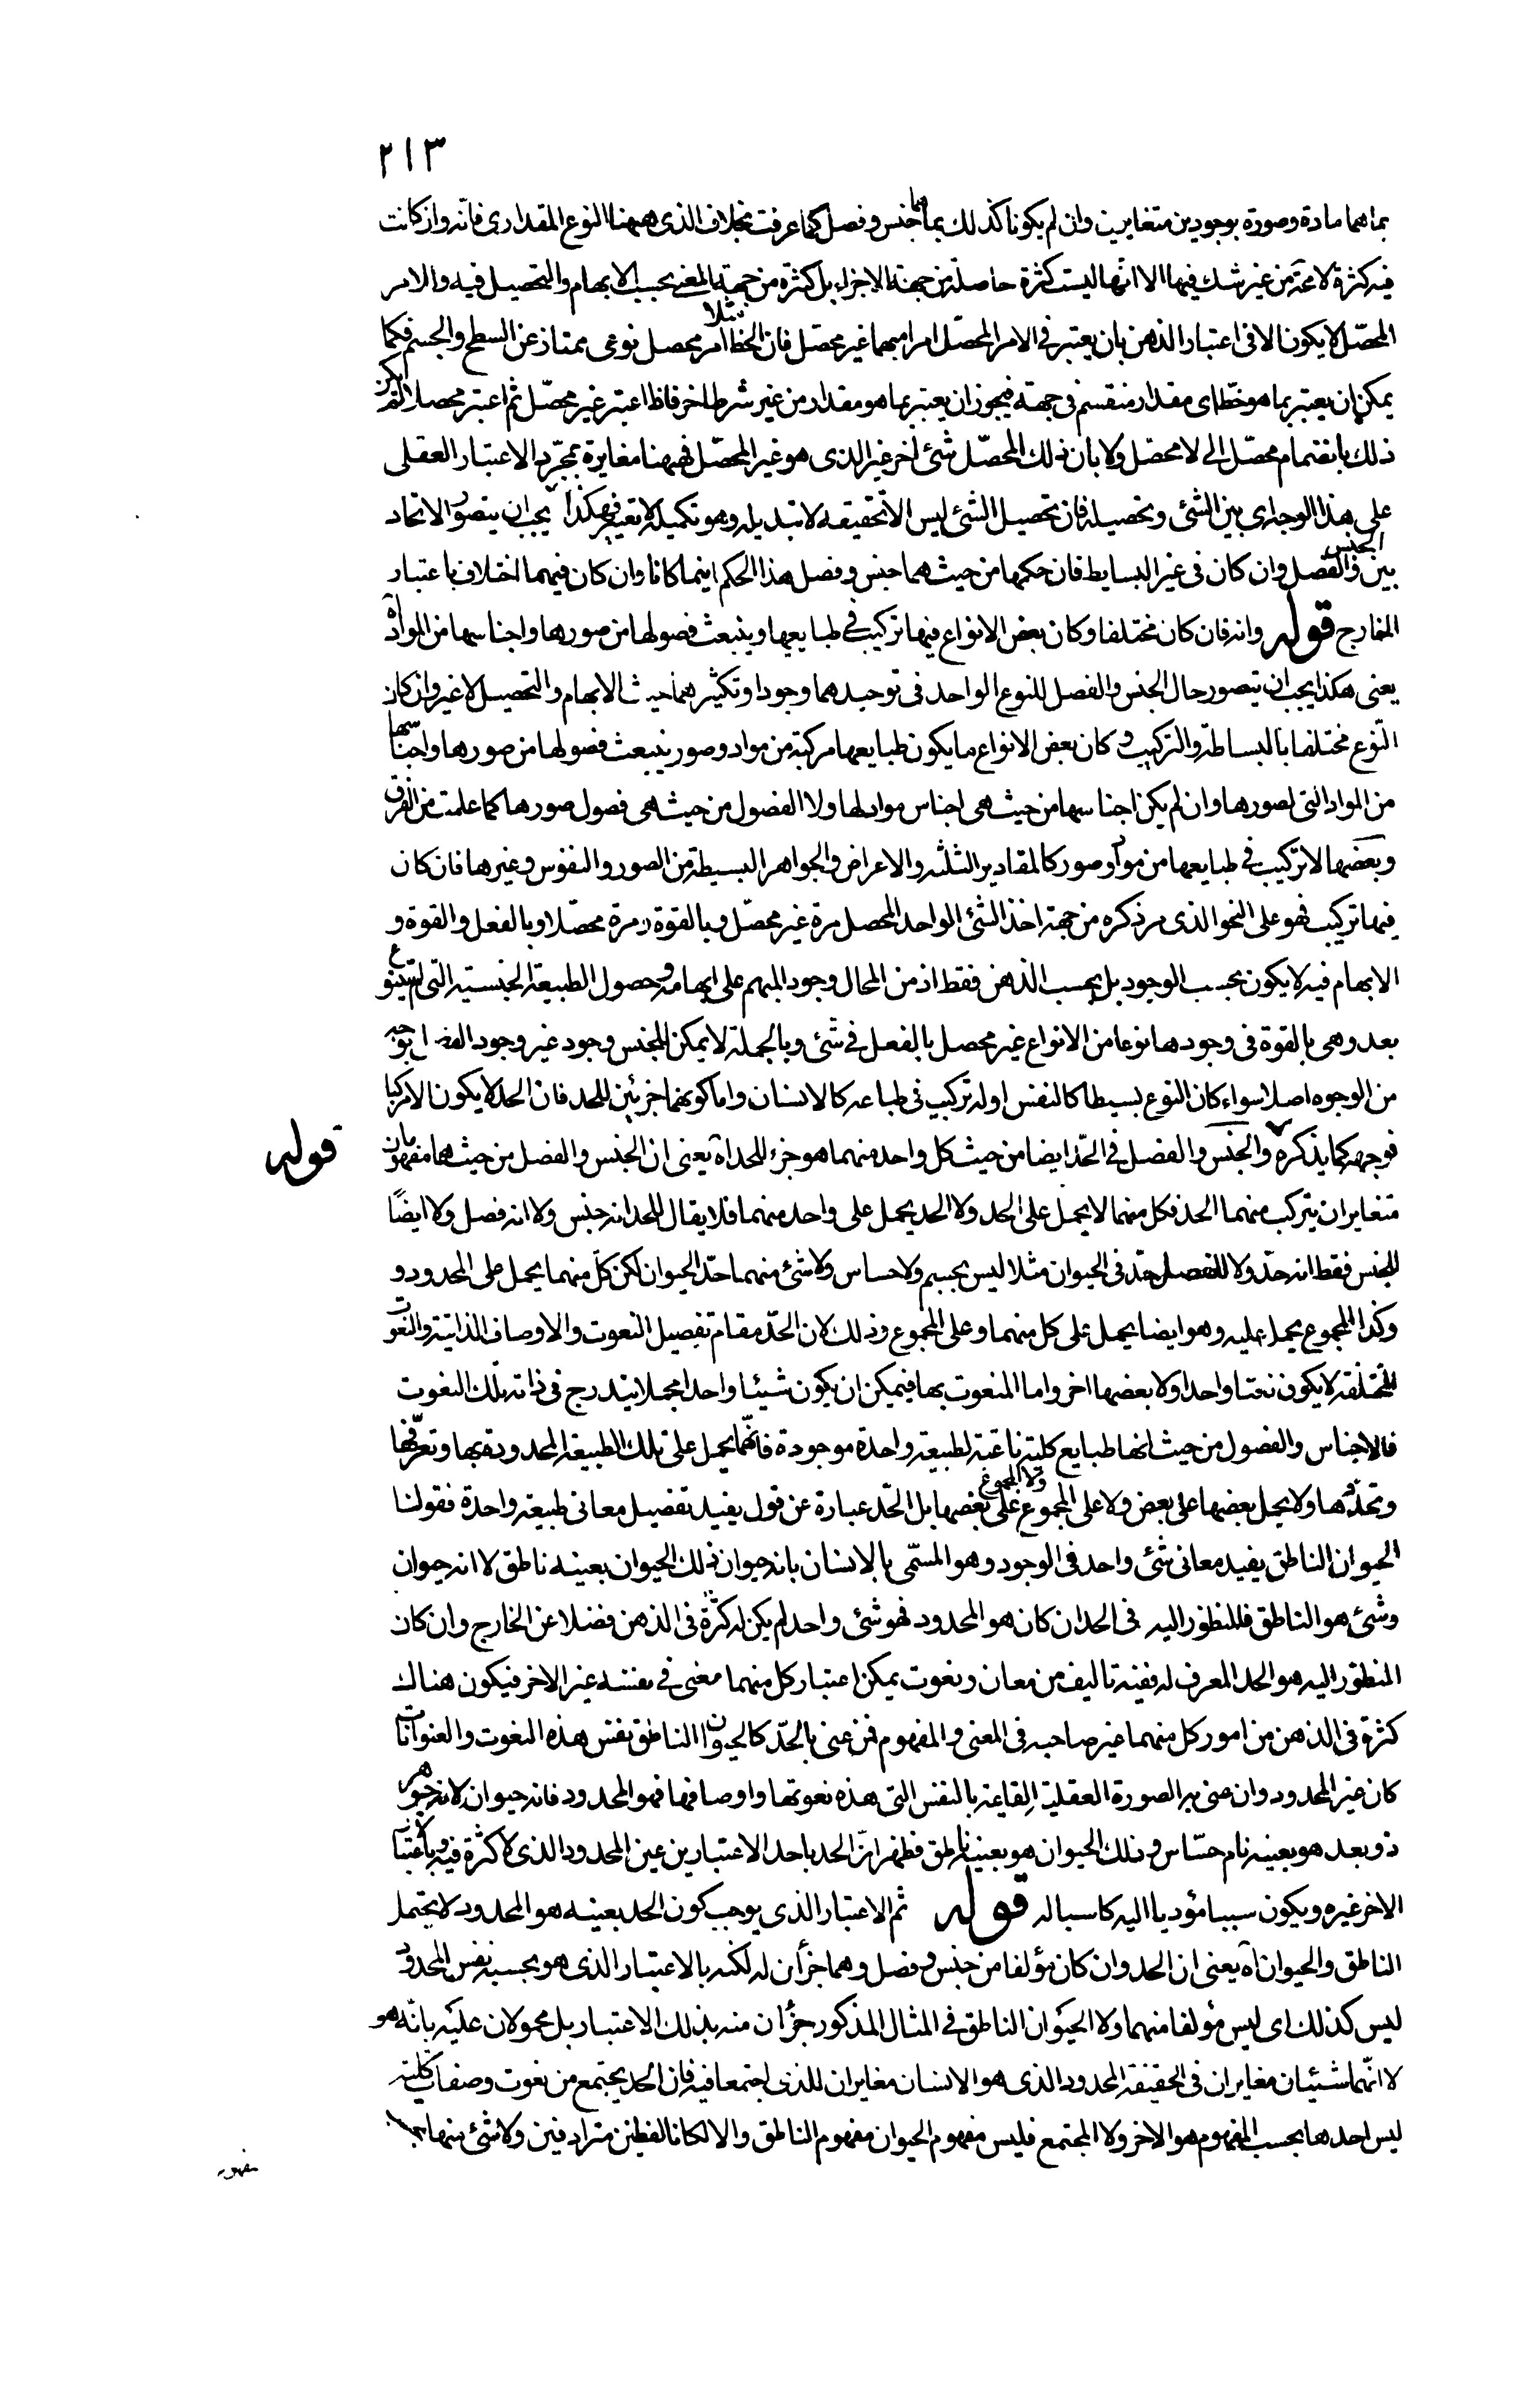 ٢١٣
بما هما مادة وصورة بوجودين متغايرين وان لم يكونا كذلك بما هما جنس وفصل كما عرفت بخلاف الذى ههنا النوع المقدارى فانه وان كانت
فيه كثرة لا محة من غير شك فيها الا انها ليست كثرة حاصلة من جهة الاجزاء بل كثرة من جهة المعنى بحسب الابهام والتحصيل فيه والامر
المحصّل لا يكون الا فى اعتبار الذهن بان يعتبر فى الامر المحصّل امرا مبهما غير محصّل فان الخط مثلا امر محصل نوعى ممتاز عن السطح والجسم فكما
يمكن ان يعتبر بما هو خطّ اى مقدار منقسم فى جهة فيجوز ان يعتبر بما هو مقدار من غير شرط اخر فاذا اعتبر غير محصّل ثم اعتبر محصلا لم يكن
ذلك بانضمام محصّل الى لا محصل ولا بان ذلك المحصّل شئ اخر غير الذى هو غير المحصّل فههنا مغايرة بمجرد الاعتبار العقلى
على هذا الوجه اى بين الشئ وتحصيله فان تحصيل الشئ ليس الا تحقيقه لا تبديله وهو تكميله لا تغييره فهكذا يجب ان يتصور الاتحاد
بين الجنس والفصل وان كان فى غير البسايط فان حكمها من حيث هما جنس وفصل هذا الحكم اينما كانا وان كان فيهما اختلاف باعتبار
الخارج قوله وانه فان كان مختلفا وكان بعض الانواع فيها تركيب فى طبايعها وينبعث فصولها من صورها واجناسها من المواد آه
يعنى هكذا يجب ان يتصور حال الجنس والفصل للنوع الواحد فى توحيدهما وجودا وتكثيرهما حيث الابهام والتحصيل لا غير وان كان
النوع مختلفا بالبساطة والتركيب وكان بعض الانواع ما يكون طبايعها مركبة من مواد وصور ينبعث فصولها من صورها واجناسها
من المواد التى لصورها وان لم يكن اجناسها من حيث هى اجناس موادلها ولا الفصول من حيث هى فصول صورها كما علمت من الفرق
وبعضها لا تركيب فى طبايعها من مواد وصور كالمقادير الثلثه والاعراض والجواهر البسيطة من الصور والنفوس وغيرها فان كان
فيها تركيب فهو على النحو الذى مر ذكره من جهة اخذ الشئ الواحد المحصل مرة غير محصّل وبالقوة ومرة محصّلا وبالفعل والقوة و
الابهام فيه لا يكون بحسب الوجود بل بحسب الذهن فقط اذ من المحال وجود المبهم على ابهامه وحصول الطبيعة الجنسية التى لم يتنوع
بعد وهى بالقوة فى وجودها نوعا من الانواع غير محصل بالفعل فى شئ وبالجملة لا يمكن للجنس وجود غير وجود الفصل بوجه
من الوجوه اصلا سواء كان النوع بسيطا كالنفس او له تركيب فى طباعه كالانسان واما كونهما جزئين للحد فان الحد لا يكون الا مركبا
فوجهه كما يذكره قوله والجنس والفصل فى الحدّ ايضا من حيث كل واحد منهما هو جزء للحد آه يعنى ان الجنس والفصل من حيث هما مفهومان
متغايران يتركب منهما الحد فكل منهما لا يحمل على الحد ولا الحد يحمل على واحد منهما فلا يقال للحد انه جنس ولا انه فصل ولا ايضًا
للجنس فقط انه حدّ ولا للفصل حدّ فى الحيوان مثلا ليس بجسم ولا حساس ولا شئ منهما حدّ الحيوان لكن كلّ منهما يحمل على المحدود و
وكذا المجموع يحمل عليه وهو ايضا يحمل على كل منهما وعلى المجموع وذلك لان الحدّ مقام تفصيل النعوت والاوصاف الذاتية والنعوت
المختلفة لا يكون نعتا واحدا ولا بعضها اخر واما المنعوت بها فيمكن ان يكون شيئا واحدا مجملا يندرج فى ذاته تلك النعوت
فالاجناس والفصول من حيث انها طبايع كلية ناعتة لطبيعة واحدة موجودة فانّها يحمل على تلك الطبيعة المحدودة بها وتعرّفها
وتحدّدها ولا يحمل بعضها على بعض ولا على المجموع ولا المجموع على بعضها بل الحّد عبارة عن قول يفيد تفصيل معانى طبيعة واحدة فقولنا
الحيوان الناطق يفيد معانى شئ واحد فى الوجود وهو المسمّى بالانسان بانه حيوان ذلك الحيوان بعينه ناطق لا انه حيوان
وشئ هو الناطق فالمنظور اليه فى الحد ان كان هو المحدود فهو شئ واحد لم يكن له كثرة فى الذهن فضلا عن الخارج وان كان
المنظور اليه هو الحد المعرف له ففيه تاليف من معان ونعوت يمكن اعتبار كل منهما معنى فى نفسه غير الاخر فيكون هناك
كثرة فى الذهن من امور كل منهما غير صاحبه فى المعنى والمفهوم فن عنى بالحدّ كالحيوان الناطق نفس هذه النعوت والعنوانات
كان غير المحدود وان عنى به الصورة العقلية القايمة بالنفس التى هذه نعوتها واوصافها فهو المحدود فانه حيوان لانه جوهر
ذو بعد هو بعينه نام حسّاس وذلك الحيوان هو بعينه ناطق فظهر انّ الحد باحد الاعتبارين عين المحدود الذى لا كثرة فيه وبالاعتبار
الاخر غيره ويكون سببا مؤديا اليه كاسبا له قوله ثم الاعتبار الذى يوجب كون الحد بعينه هو المحدود لا يحتمل
الناطق والحيوان آه يعنى ان الحد وان كان مؤلفا من جنس وفصل وهما جزأن له لكنه بالاعتبار الذى هو بحسبه نفس المحدود
ليس كذلك اى ليس مؤلفا منهما ولا الحيوان الناطق فى المثال المذكور جزأن منه بذلك الاعتبار بل محمولان عليه بانّه هو
لا انّهما شيئان مغايران فى الحقيقة المحدود الذى هو الانسان مغايران للذى اجتمعا فيه فان الحد يجتمع من نعوت وصفات كلية
ليس احدها بحسب المفهوم هو الاخر ولا المجتمع فليس مفهوم الحيوان مفهوم الناطق والا لكانا لفظين مترادفين ولا شئ منهما
مفهوم